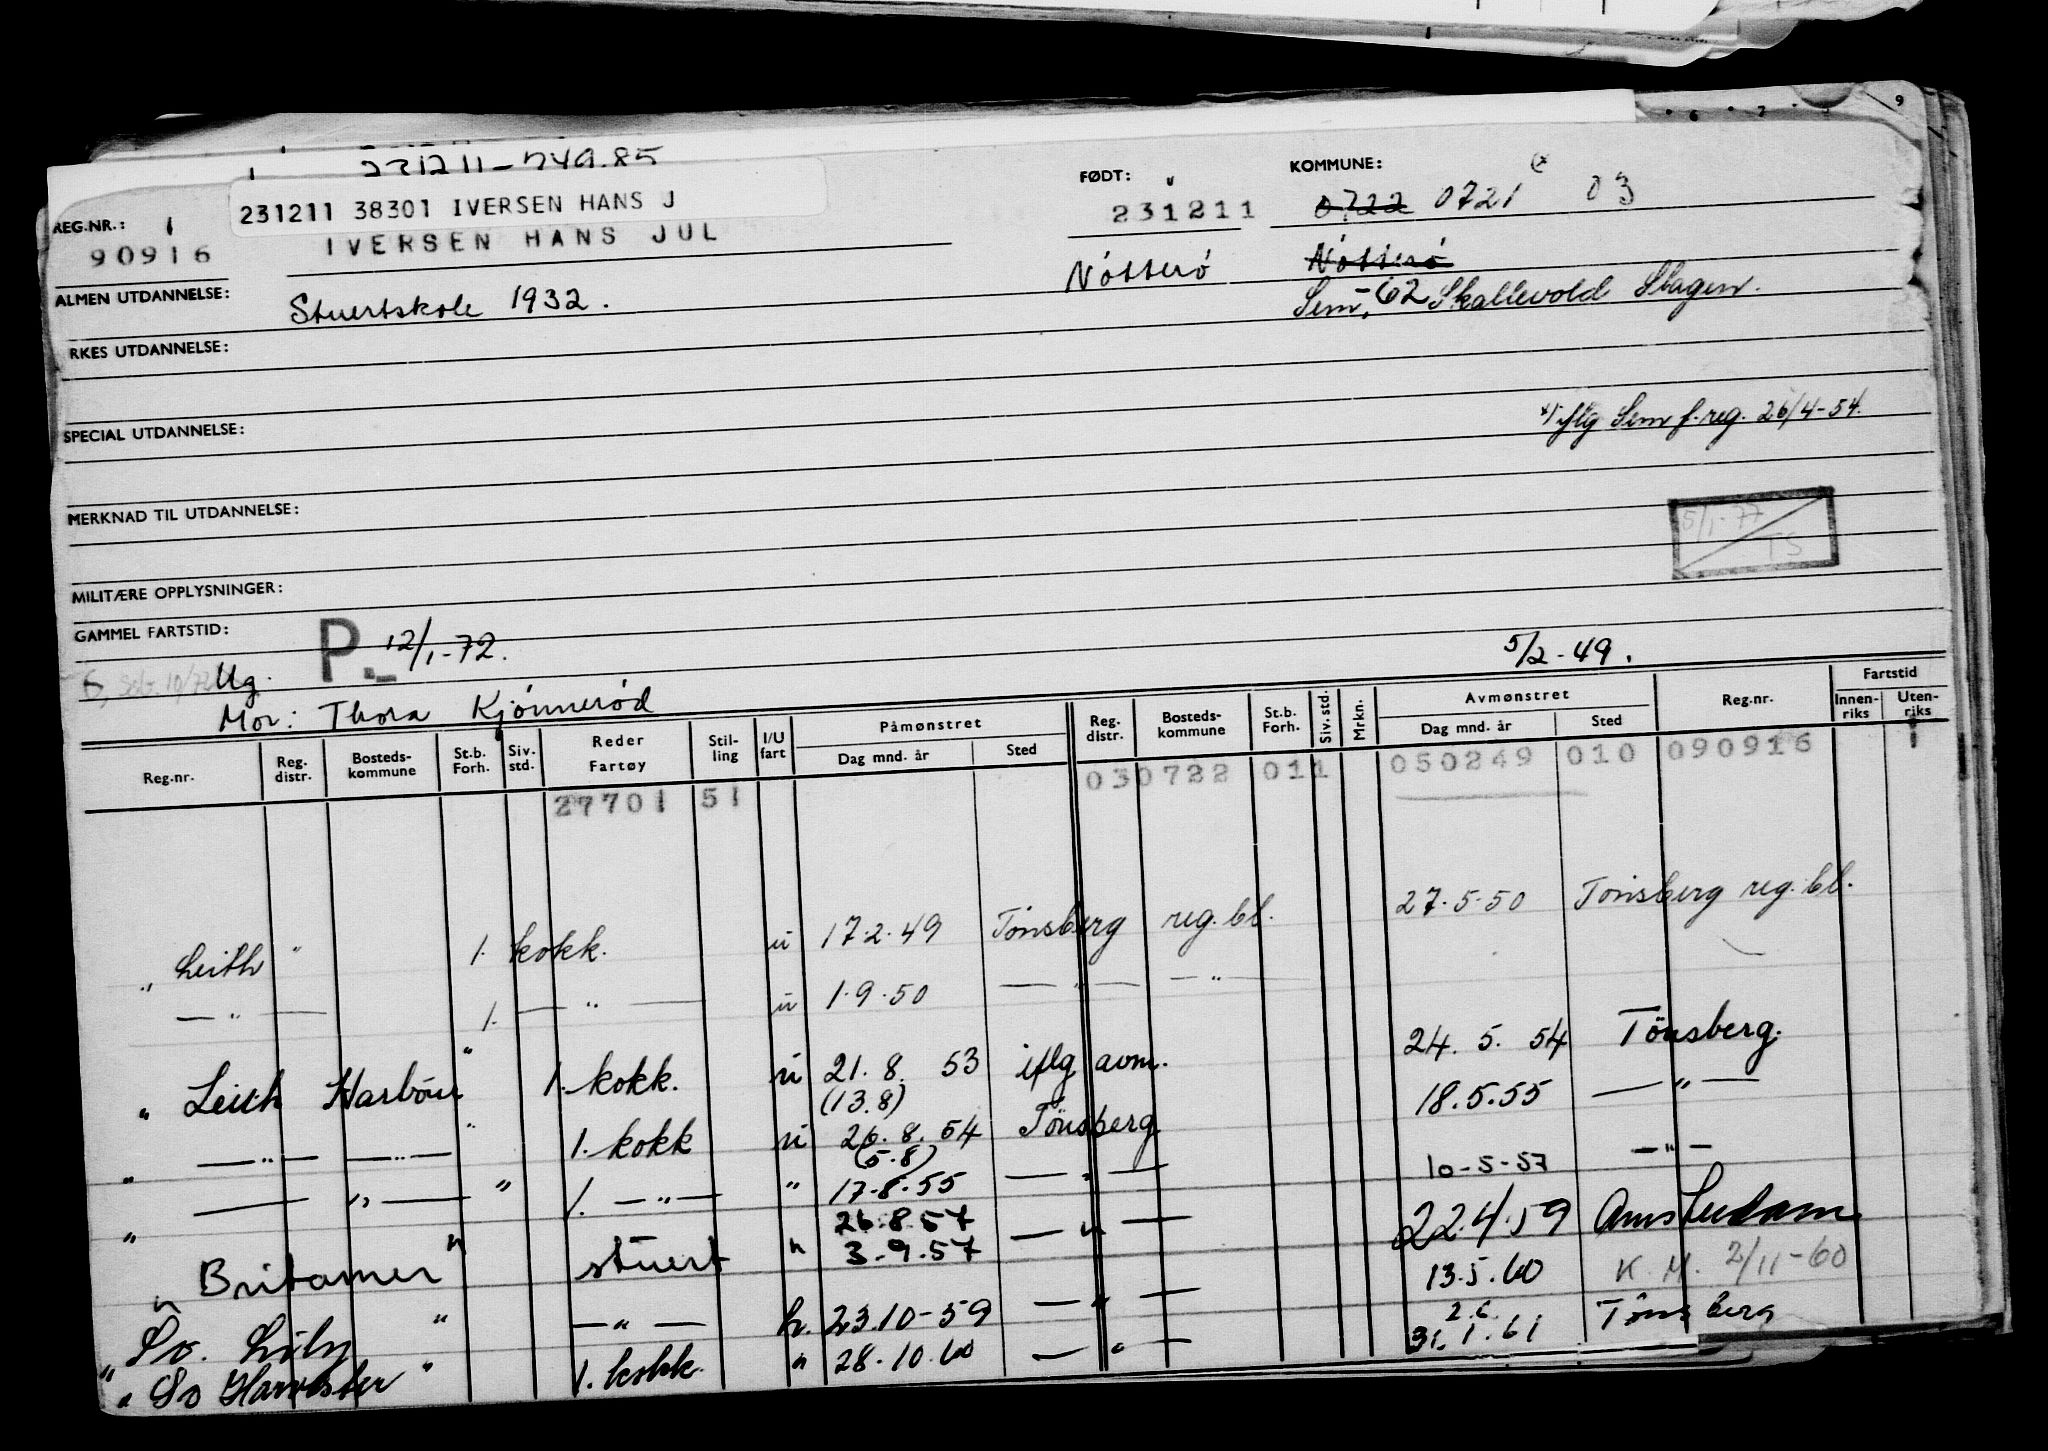 231211-749.85
231211 38301 IVERSEN HANS J
REG.NR.: 1
90916
IVERSEN HANS JUL
FØDT:
231211
Nötterö
KOMMUNE:
0722 0721 03
Nötterö
Sem, -62 Skallevold Slagen.
ALMEN UTDANNELSE:
Stuertskole 1932.
RKES UTDANNELSE:
SPECIAL UTDANNELSE:
x) iflg Sem f.reg. 26/4-54.
MERKNAD TIL UTDANNELSE:
5/1-77
TS
MILITÆRE OPPLYSNINGER:
GAMMEL FARTSTID:
Ug. P. 12/1-72.
5/2-49.
Mor: Thora Kjönneröd
Reg.nr. Reg. distr. Bosteds-kommune St.b. Forh. Siv. std. Reder Fartøy Stil-ling I/U fart Påmønstret Dag mnd. år Sted Reg. distr. Bosteds-kommune St.b. Forh. Siv. std. Mrkn. Avmønstret Dag mnd. år Sted Reg.nr. Fartstid Innen-riks Uten-riks
27701 51 030722 011 050249 010 090916 1
" Leith " 1. kokk. u 17.2.49 Tönsberg reg.bl. 27.5.50 Tönsberg reg.bl.
— " — 1. — " — u 1.9.50 — " — — " —
" Leith Harbour " 1. kokk. u 21.8.53 iflg avm. 24.5.54 Tönsberg.
(13.8)
" — " — — " — " 1. kokk u 26.8.54 Tönsberg 18.5.55 — " —
(5.8)
" — " — " 1. — " — " 17.8.55 — " — 10-5-57 — " —
26.8.57
" Britamer " stuert " 3.9.57 — " — 22.4.59 Amsterdam
" So. Lily " — " — h. 23.10-59 — " — 13.5.60 K.M. 2/11-60
2.6.
" So Harvester " 1. kokk. " 28.10.60 — " — 31.1.61 Tönsberg